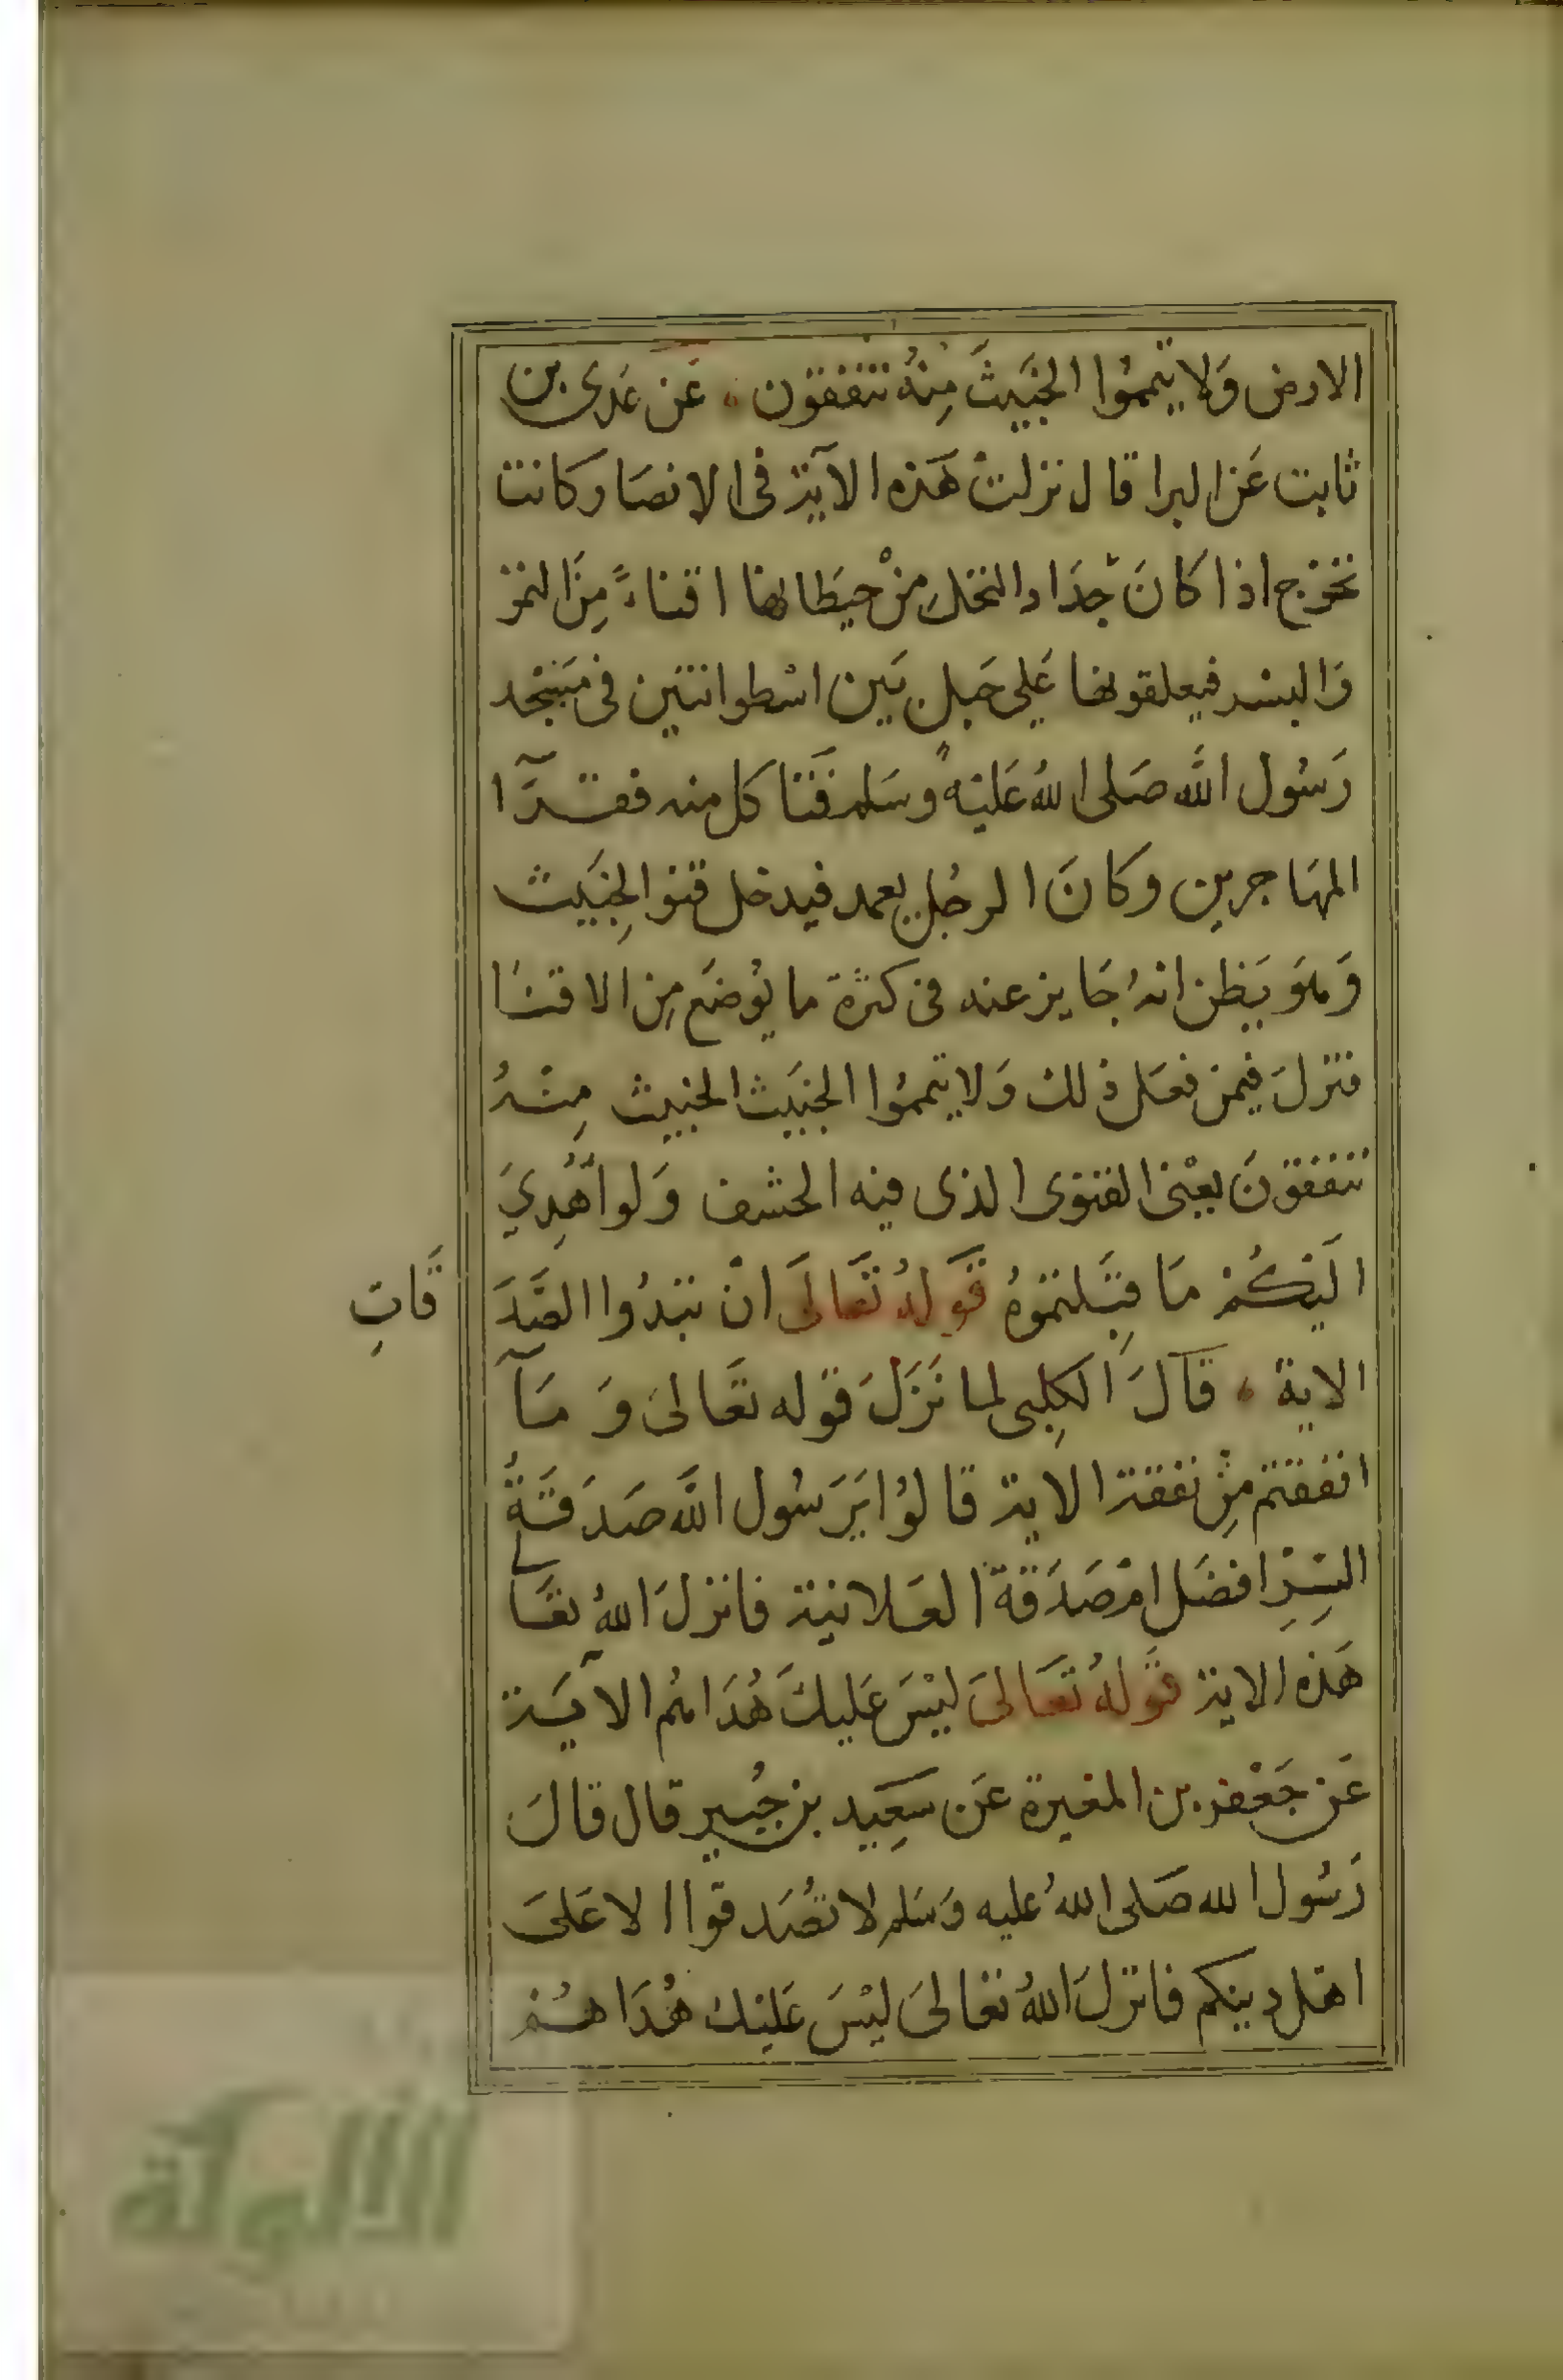 الارض وَلا تيمموُا الخبَيثَ مِنْهُ تنفقون ، عَن عَدى بن
ثابت عَن البرا قال نزلتْ هَذه الآية فى الانصَار كانت
تخرج اذا كانَ جُدَاد النخلِ مِنْ حيَطانها اقناءً مِنَ التمر
وَالبسر فيعلقونها عَلى حَبل بَين اسْطوانتين فى مَسْجد
رَسُول اللَّه صَلى اللهُ عَليْه وسَلم فَتاكل منه فقرآ
المهَاجرين وكانَ الرجُل يعمد فيدخل قنو الخِبَيث
وَهوَ يَظن انهُ جَايز عنه فى كثرة ما يوُضَع مِن الاقنا
فنزلَ فيمن فعَل ذلك وَلا تيمموُا الخبَيث الخبيث مِنْهُ
تنفقونَ يعْنى القنوى الذى فيه الحشف وَلو اُهْدِيَ
الَيْكُمْ مَا قبَلِتموُهُ قَولهُ تَعَالَى انْ تبْدُوا الصَّدَ
قَاتِ
الاية ، قَالَ الكلِبى لما نَزَلَ قوله تعَالىَ وَ مَآ
انفقتم مِنْ نفقة الاية قالوُا يَرَسُول اللَّه صَدَقَةُ
السِرِّ افضَل امْ صَدَقَة العَلانية فانزلَ اللهُ تعَالى
هَذه الاية قَولهُ تعَالىَ ليْسَ عَليكَ هُدَاهُم الآيَة
عَن جَعْفر بن المغيرة عَن سَعِيد بن جُبير قال قالَ
رَسُول الله صَلى اللهُ عليه وَسَلم لا تصَدقوا الا عَلىَ
اهل دينكم فانزلَ اللهُ تعَالىَ ليْسَ عَليْك هُدَاهُمْ
الألوكة